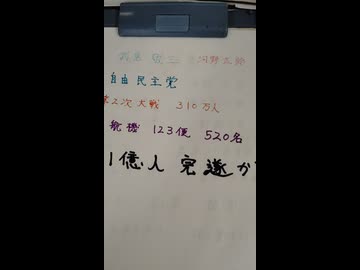 敬三 河野太郎
自由民主党
第2次大戦 310万人
航機 123便 520名
1億人 完遂か